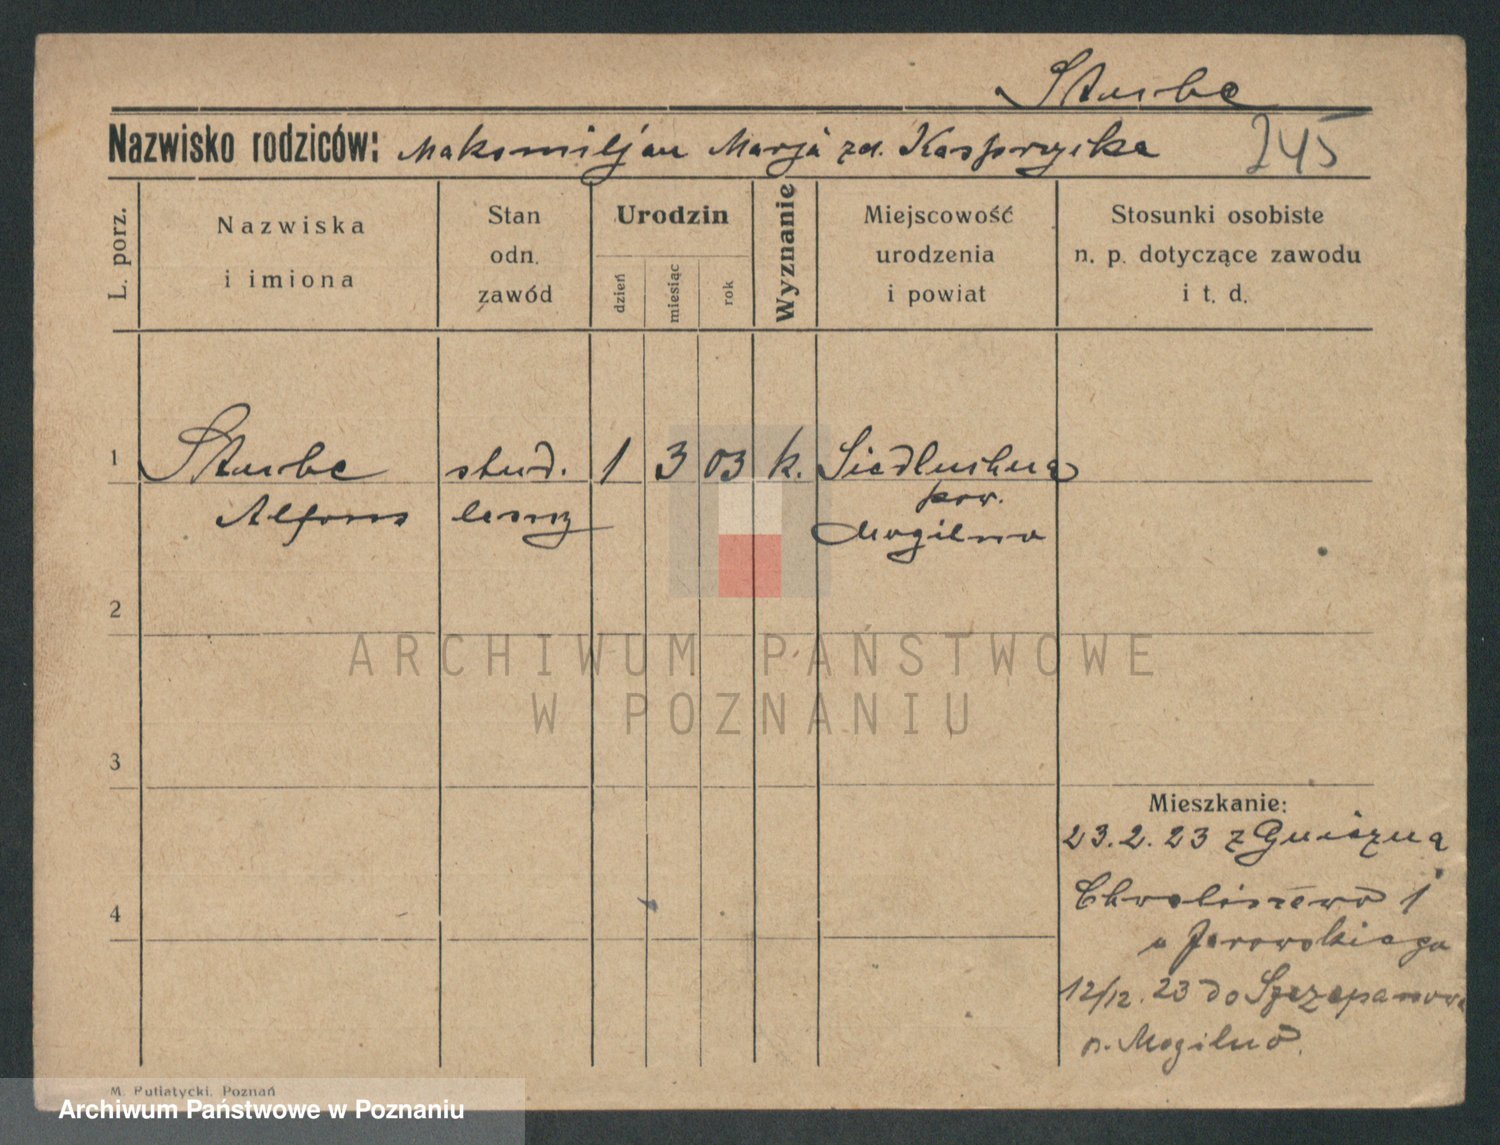 Skurbe
Nazwisko rodziców: Maksmiljan Marja zd. Kasprzycka
245
L. porz.
Nazwiska
i imiona
Stan
odn.
zawód
Urodzin
dzień
miesiąc
rok
Wyznanie
Miejscowość
urodzenia
i powiat
Stosunki osobiste
n. p. dotyczące zawodu
i t. d.
1 stud. 1 3 03 k.
Alfons
pow.
Mogilno
2
ARCHIWUM PAŃSTWOWE
W POZNANIU
3
Mieszkanie:
23.2.23 z Gniezna
4
Chwaliszewo 1
u Jarowskiego
12/12.23 do Szczepanowo
p. Mogilno.
M. Putiatycki, Poznań
Archiwum Państwowe w Poznaniu